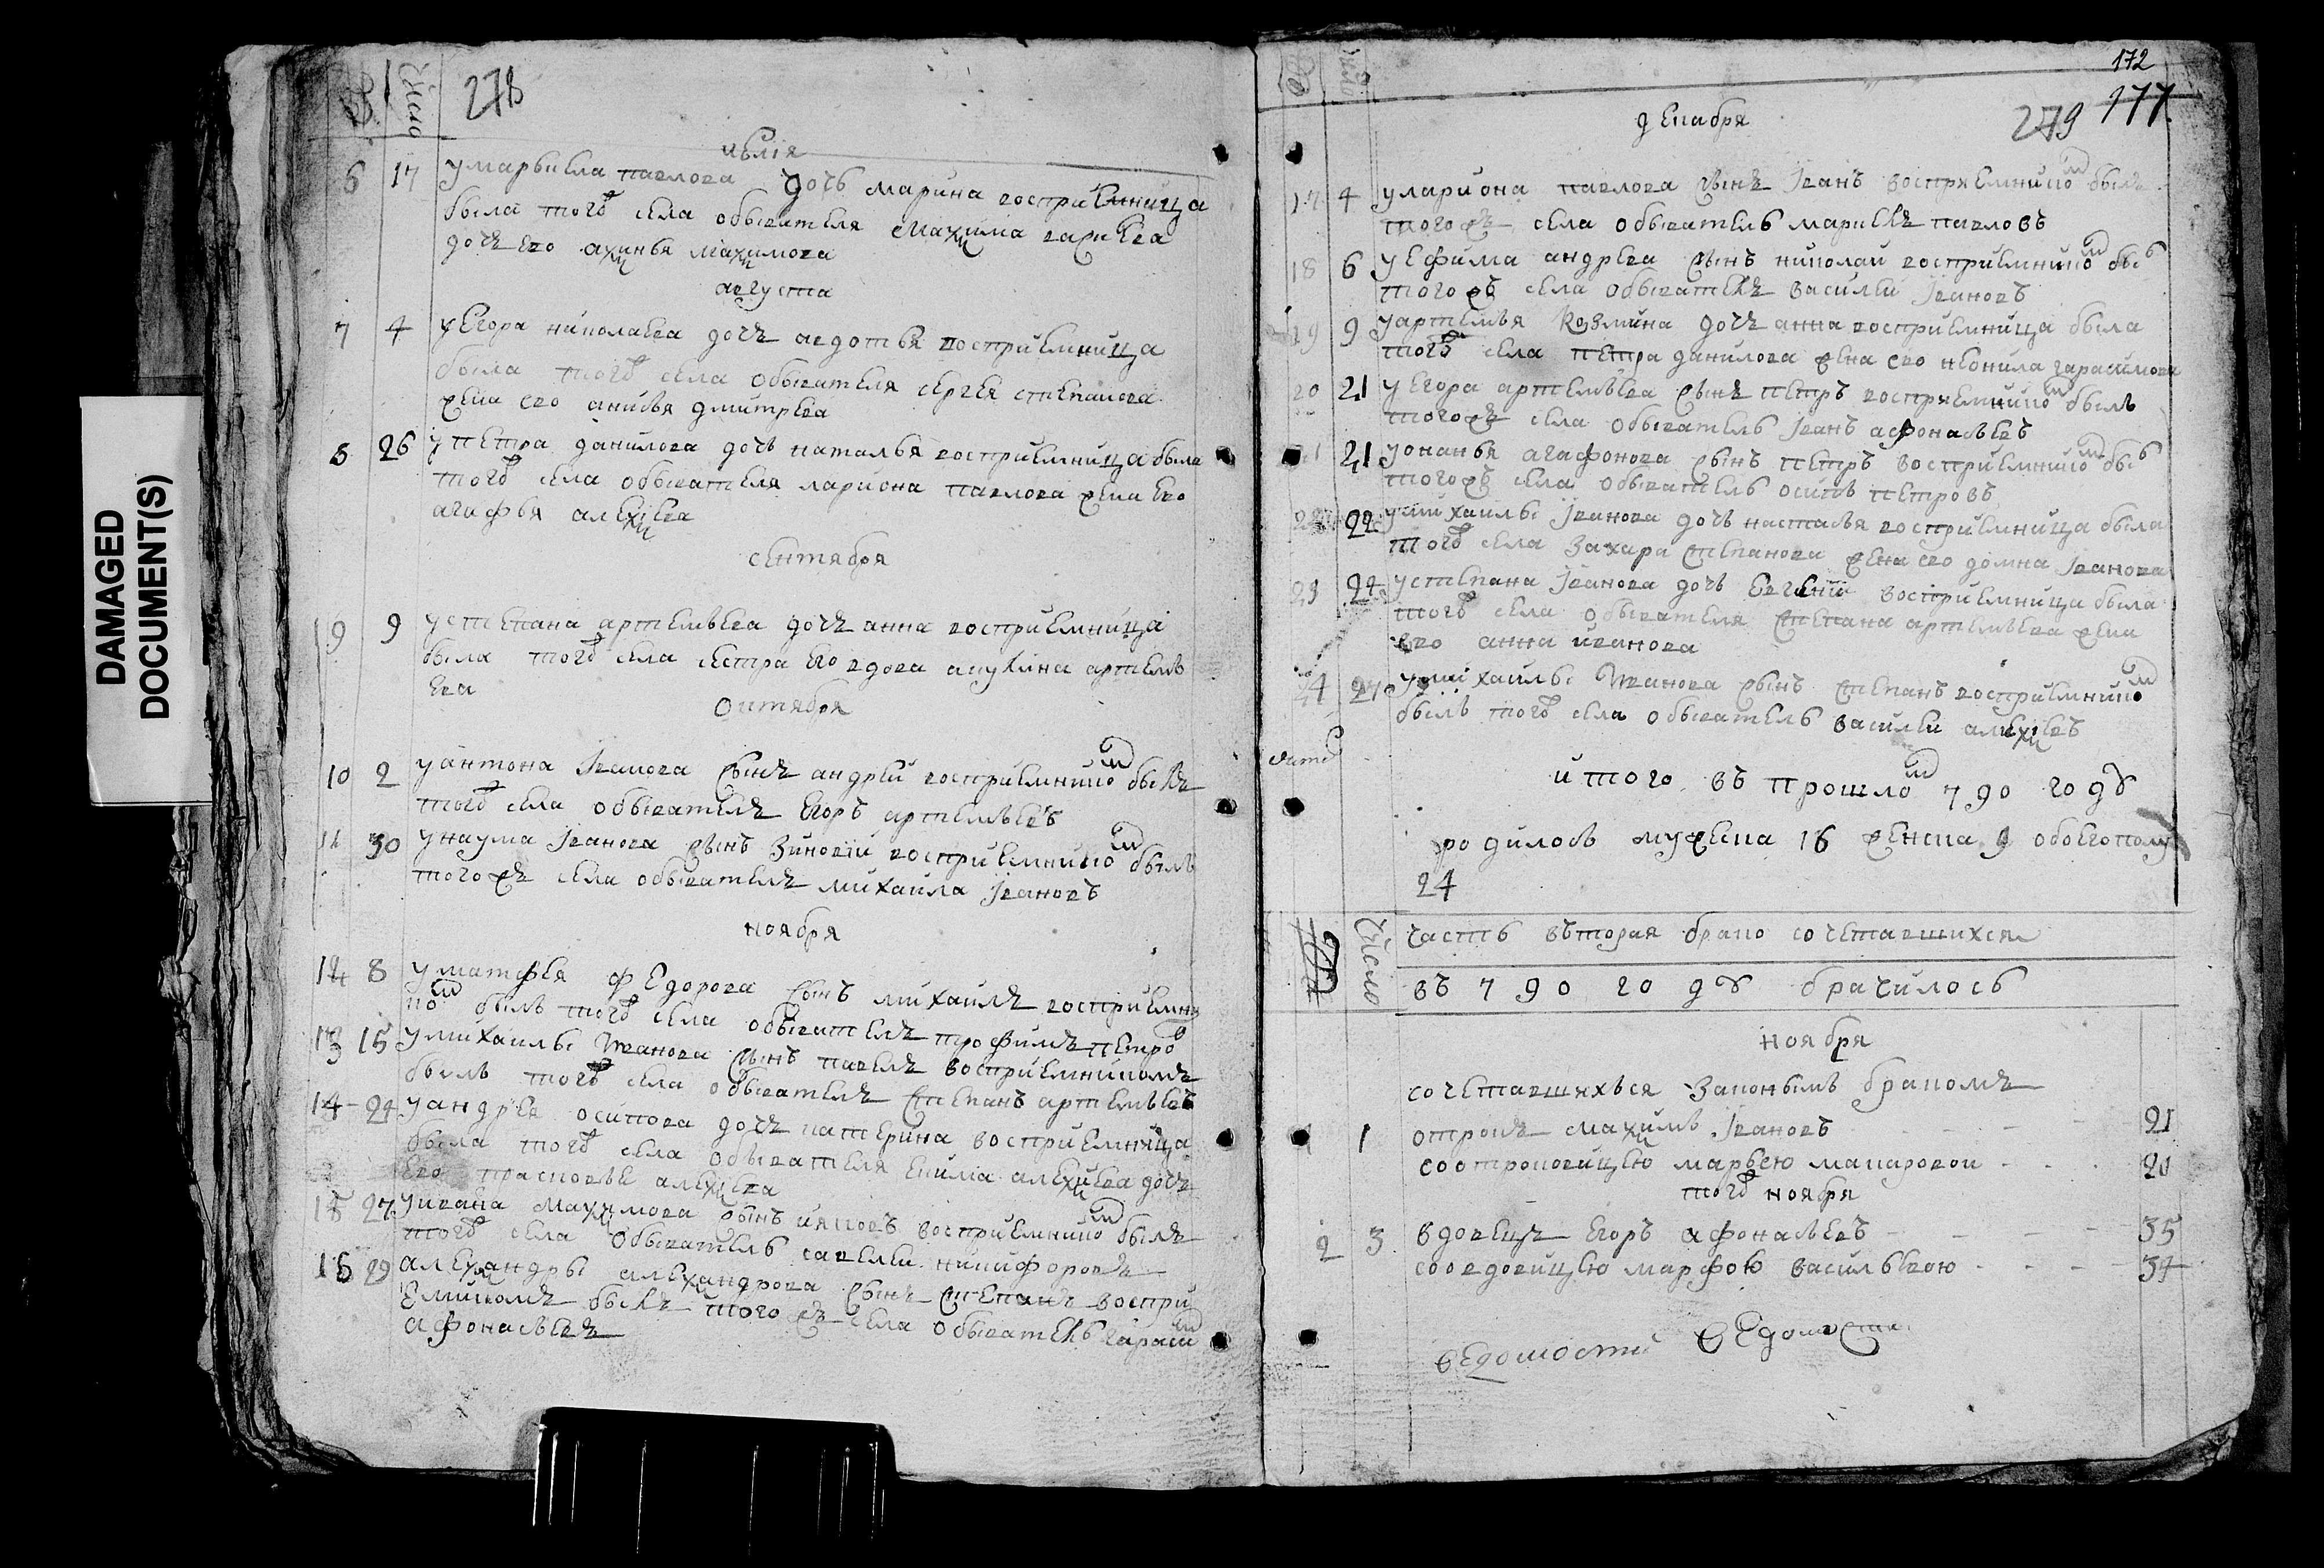 DAMAGED
DOCUMENT(S)
число
278
июлія
6 17 у марькела павлова дочь марина восприемница
была тогож села обывателя маѯима
дочь ево аѯинья маѯимова
августа
7 4 у Егора николаева дочъ авдотья восприемница
была тогож села обывателя сергея степанова
жена ево анисья дмитрева
8 26 у петра данилова дочь наталья восприемница была
тогож села обывателя лариона павлова жена Ево
агафья алеѯѣева
сентября
9 9 у степана артемьева дочъ анна восприемница
была тогож села сестра Ево вдова акулина артемь
ева
октября
10 2 у антона Іванова сынъ андрей восприемником былъ
тогож села обыватель Егоръ артемьевъ
11 30 у наума Іванова сынъ зиновій восприемником былъ
тогожъ села обыватель михаила Івановъ
ноября
12 8 у матфея федорова сынъ михаилъ восприемни
ком былъ тогож села обыватель трофимъ петров
13 15 у михаилы Иванова сынъ павелъ восприемникомъ
былъ тогож села обыватель степанъ артемьевъ
14 24 у андрея осипова дочъ катерина восприемница
была тогож села обывателя алеѯѣева дочъ
Ево прасковья алеѯѣева
15 27 у ивана маѯимова сынъ ияковъ восприемником былъ
тогож села обыватель савелеи никифоровъ
16 29 алеѯандры алеѯандрова сынъ степанъ воспри
Емникомъ былъ тогожъ села обыватель гарасим
афонасьевъ
172
279 177
число
декабря
17 4 у лариона павлова сынъ Іванъ восприемником былъ
тогожъ села обыватель маркелъ павловъ
18 6 у Ефима андрева сынъ николаи восприемником былъ
тогожъ села обыватель василеи Івановъ
19 9 у артемья козмина дочъ анна восприемница была
тогож села петра данилова жена ево неонила гарасимова
20 21 у Егора артемьева сынъ петръ восприемником былъ
тогожъ села обыватель Іванъ афонасьевъ
21 21 у онанья агафонова сынъ петръ восприемником былъ
тогожъ села обыватель осипъ петровъ
22 22 у михаилы Іванова дочь настасья восприемница была
тогож села захара степанова жена ево домна Іванова
23 24 у степана Іванова дочь Евгения восприемница была
тогож села обывателя степана артемьева жена
ево анна иванова
24 27 у михаилы Иванова сынъ степанъ восприемником
былъ тогож села обыватель василеи алеѯѣевъ
итого въ прошлом 790 году
родилось мужеска 16 женска 9 обоего полу
24
число
часть вторая брако сочетавшихся
въ 790 году брачилось
ноября
сочетавшихься законымъ бракомъ
1 1 отрокъ маѯимъ Івановъ 21
соотроковицею марьею макаровои 20
тогож ноября
2 3 вдовецъ Егоръ афонасьевъ 35
со вдовицею марфою васильевою 34
ведомости ведомости